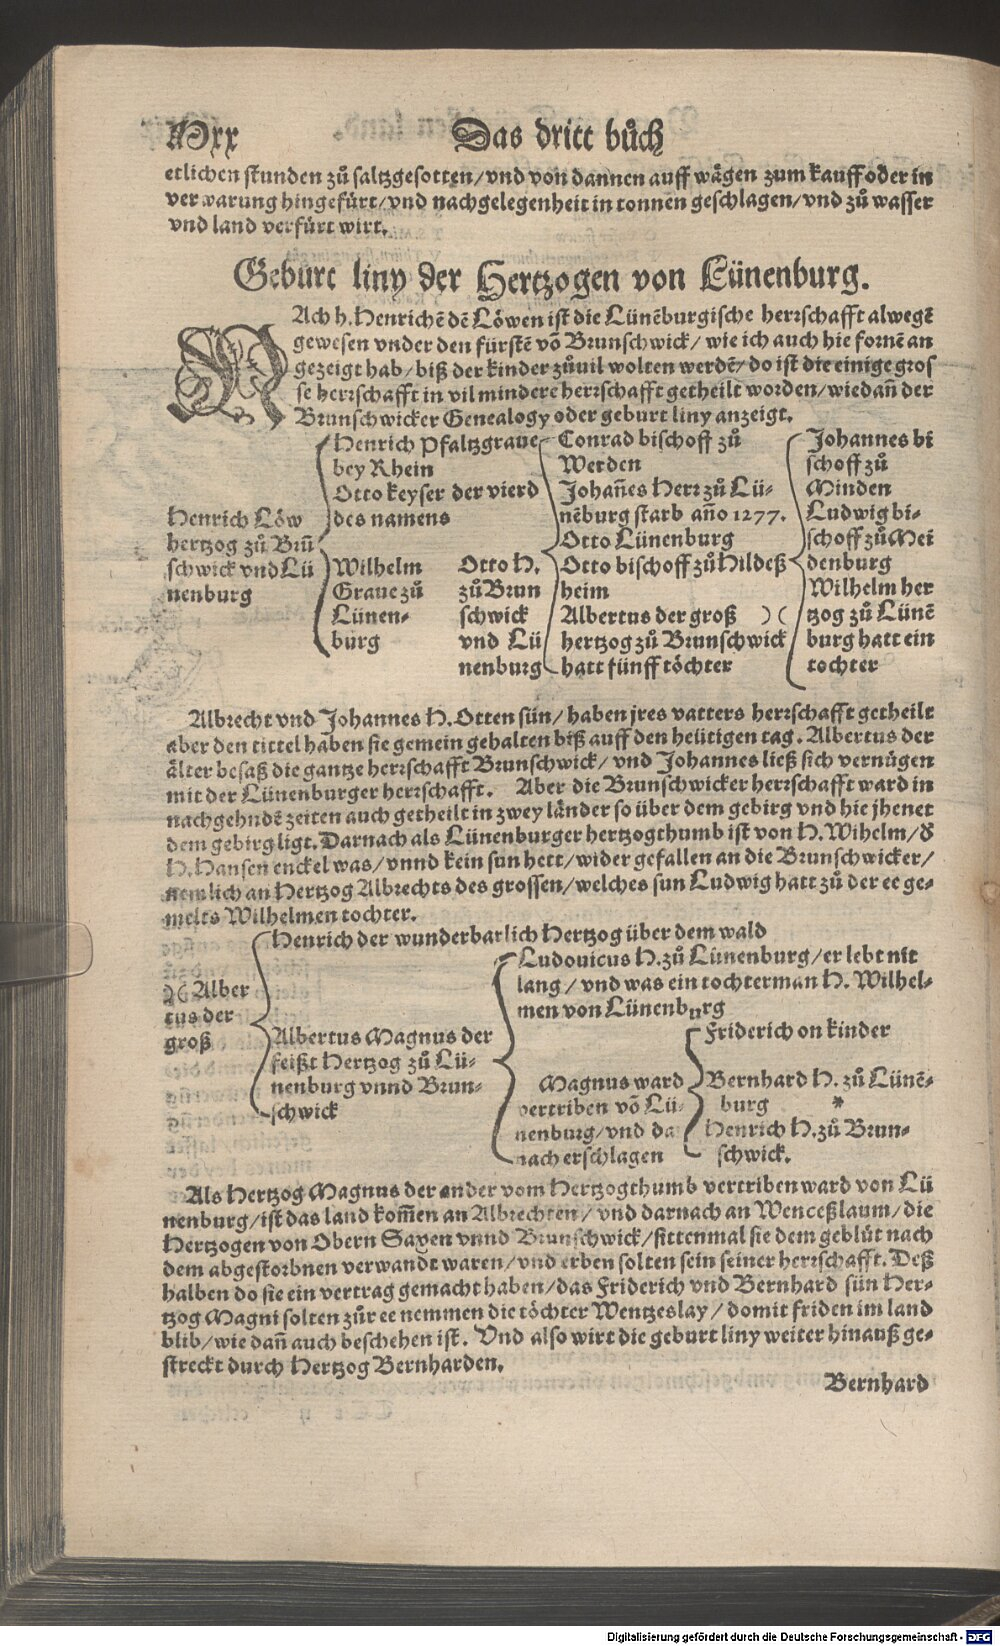 Mxx
Das dritt bůch
etlichen stunden zů saltzgesotten/vnd von dannen auff wägen zum kauff oder in
verwarung hingefürt/vnd nachgelegenheit in tonnen geschlagen/vnd zů wasser
vnd land verfürt wirt.
Geburt liny der Hertzogen von Lünenburg.
NAch h. Henrichē dē Löwen ist die Lünēburgische herrschafft alwegē
gewesen vnder den fürstē vō Brunschwick/ wie ich auch hie fornē an
gezeigt hab/ biß der kinder zůuil wolten werdē/ do ist die einige gros
se herrschafft in vil mindere herrschafft getheilt worden/wiedañ der
Brunschwicker Genealogy oder geburt liny anzeigt.
Henrich Löw
hertzog zů Brū
schwick vnd Lü
nenburg
Henrich Pfaltzgraue
bey Rhein
Otto keyser der vierd
des namens
Wilhelm
Graue zů
Lünen-
burg
Otto H.
zů Brun
schwick
vnd Lü
nenburg
Conrad bischoff zů
Werden
Johañes Herr zů Lü-
nēburg starb año 1277.
Otto Lünenburg
Otto bischoff zů Hildeß
heim
Albertus der groß )(
hertzog zů Brunschwick
hatt fünff töchter
Johannes bi
schoff zů
Minden
Ludwig bi-
schoff zů Mei
denburg
Wilhelm her
tzog zů Lünē
burg hatt ein
tochter
Albrecht vnd Johannes H. Otten sün/ haben jres vatters herrschafft getheilt
aber den tittel haben sie gemein gehalten biß auff den heütigen tag. Albertus der
älter besaß die gantze herrschafft Brunschwick/ vnd Johannes ließ sich vernügen
mit der Lünenburger herrschafft. Aber die Brunschwicker herrschafft ward in
nachgehndē zeiten auch getheilt in zwey länder so über dem gebirg vnd hie jhenet
dem gebirg ligt. Darnach als Lünenburger hertzogthumb ist von H. Wihelm/ d̄
H. Hansen enckel was/ vnnd kein sun hett/ wider gefallen an die Brunschwicker/
nemlich an Hertzog Albrechts des grossen/ welches sun Ludwig hatt zů der ee ge-
melts Wilhelmen tochter.
)( Alber
tus der
groß
Henrich der wunderbarlich Hertzog über dem wald
Albertus Magnus der
feißt Hertzog zů Lü-
nenburg vnnd Brun-
schwick
Ludouicus H. zů Lünenburg/ er lebt nit
lang/ vnd was ein tochterman H. Wilhel-
men von Lünenburg
Magnus ward
vertriben vō Lü-
nenburg/ vnd da
nach erschlagen
Friderich on kinder
Bernhard H. zů Lünē-
burg *
Henrich H. zů Brun-
schwick.
Als Hertzog Magnus der ander vom Hertzogthumb vertriben ward von Lü
nenburg/ ist das land kom̄en an Albrechten/ vnd darnach an Wenceßlaum/ die
Hertzogen von Obern Saxen vnnd Brunschwick/ sittenmal sie dem geblüt nach
dem abgestorbnen verwandt waren/ vnd erben solten sein seiner herrschafft. Deß
halben do sie ein vertrag gemacht haben/ das Friderich vnd Bernhard sün Her-
tzog Magni solten zůr ee nemmen die töchter Wentzeslay/ domit friden im land
blib/ wie dañ auch beschehen ist. Vnd also wirt die geburt liny weiter hinauß ge-
streckt durch Hertzog Bernharden.
Bernhard
Digitalisierung gefördert durch die Deutsche Forschungsgemeinschaft - DFG